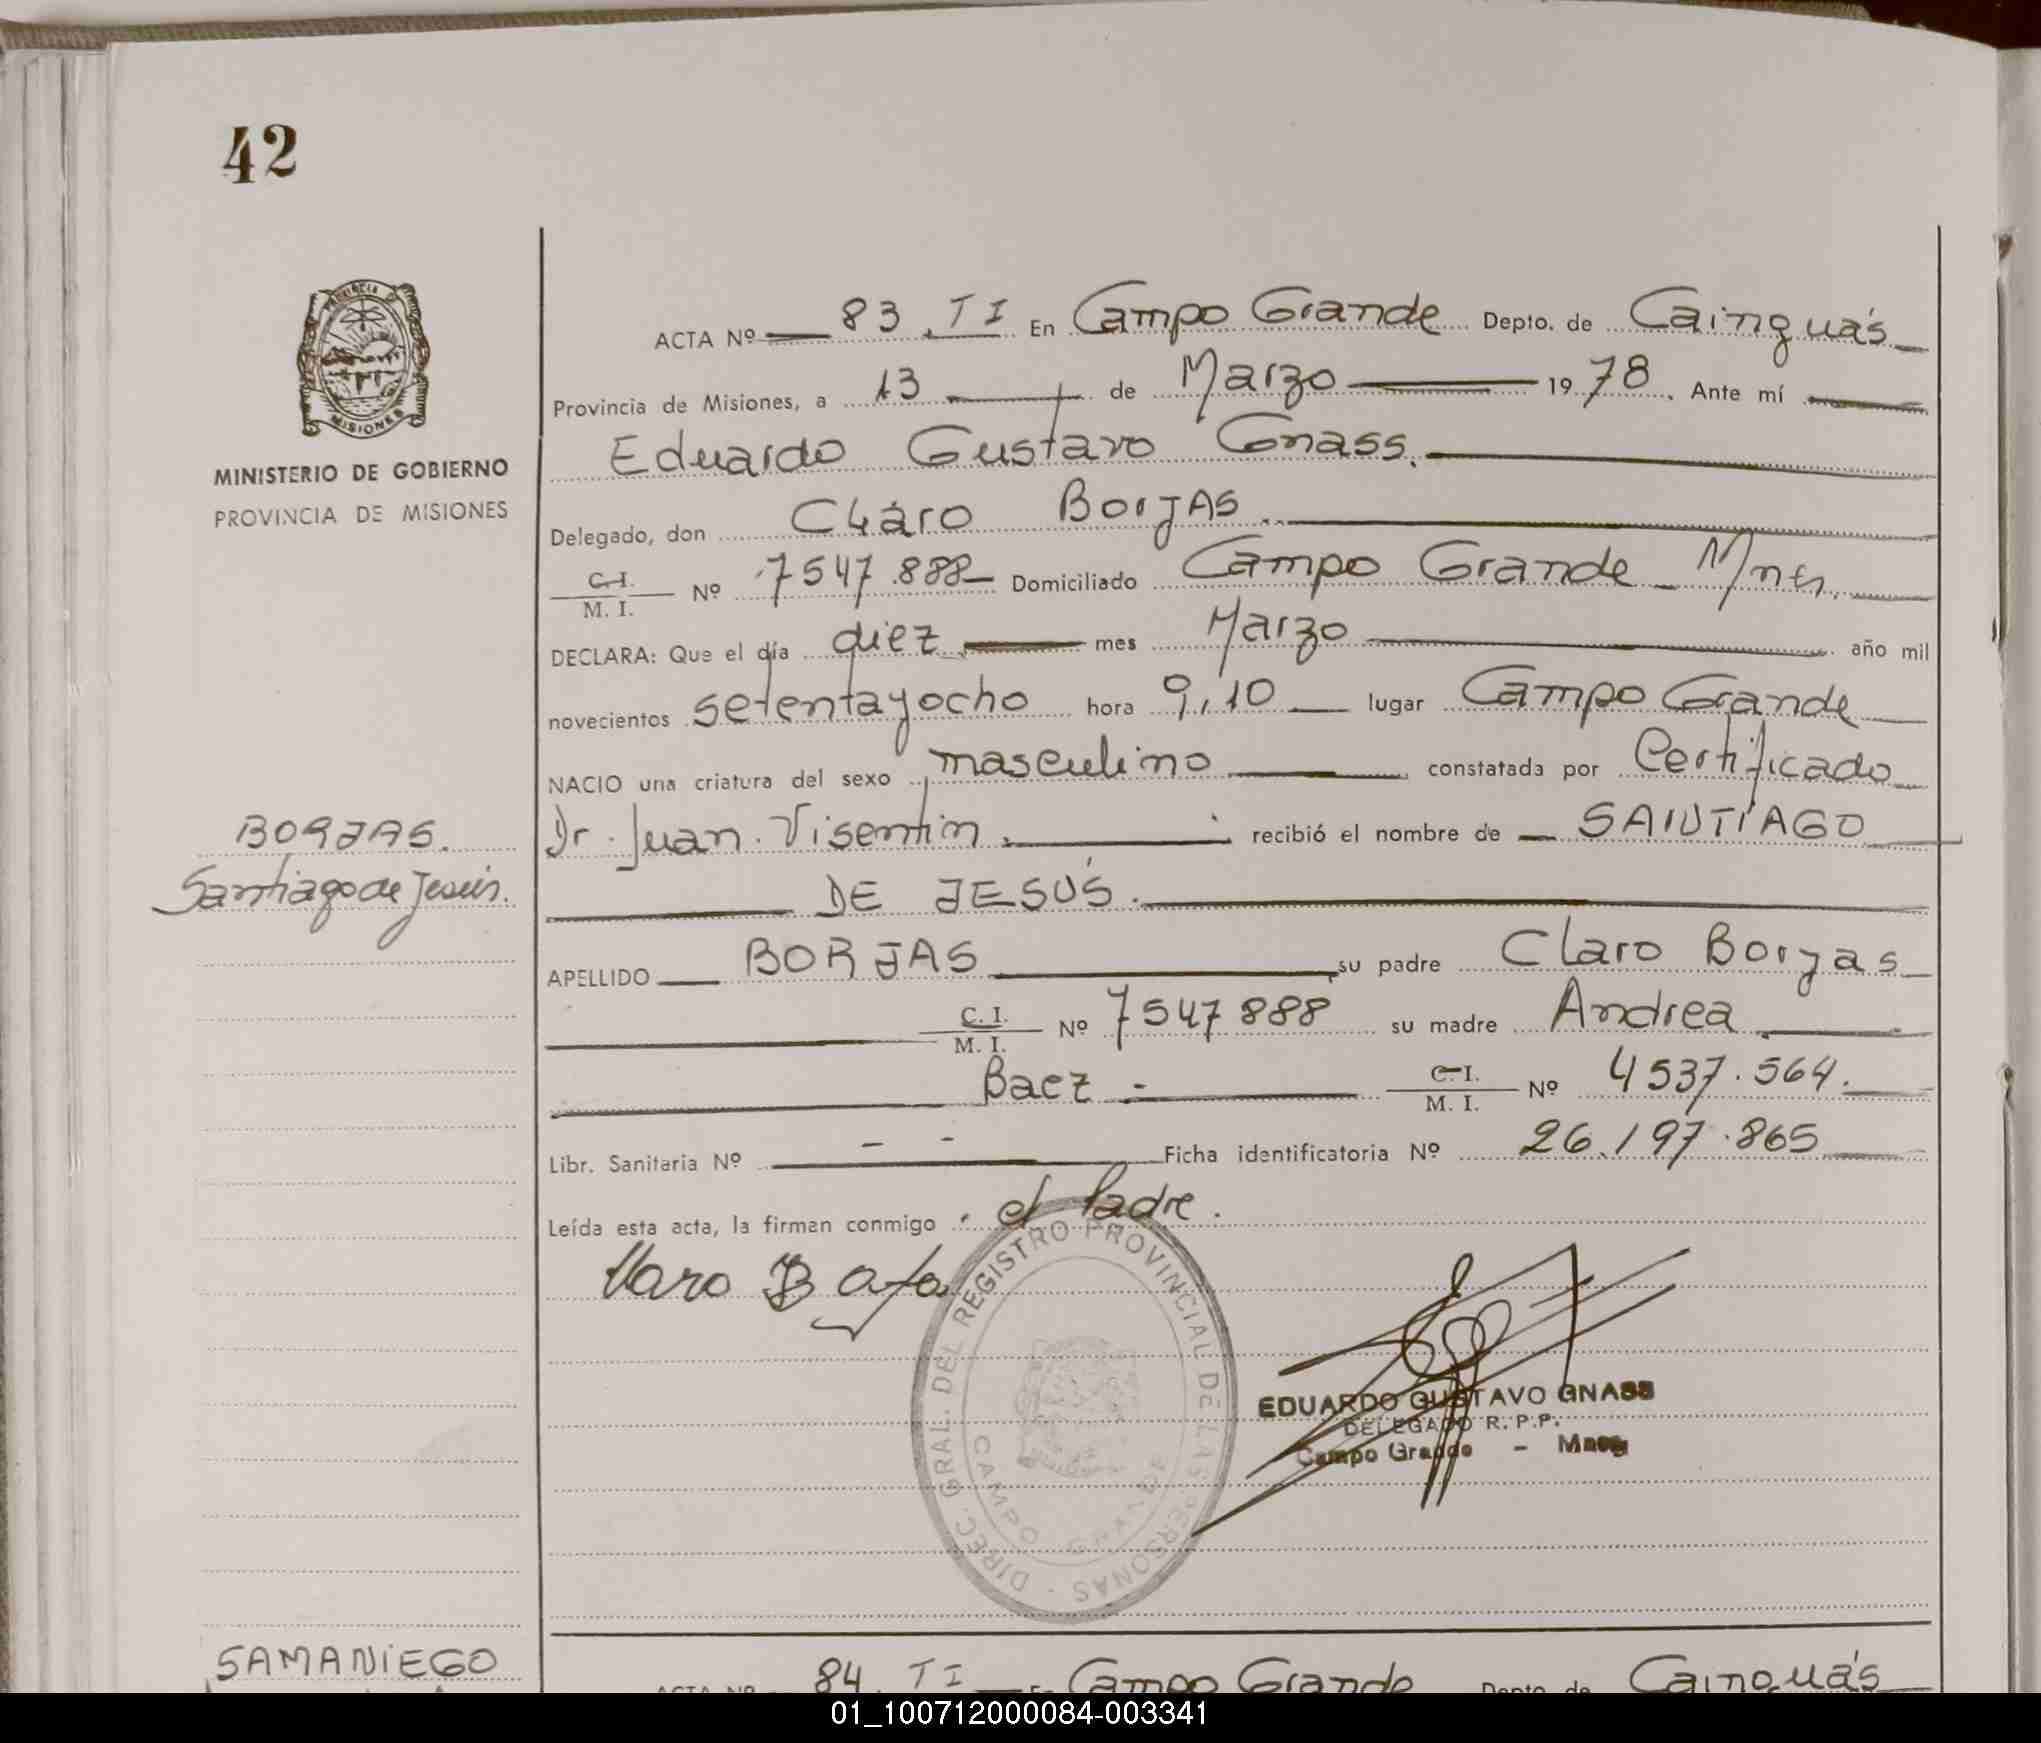 42
PROVINCIA DE
MISIONES
MINISTERIO DE GOBIERNO
PROVINCIA DE MISIONES
ACTA Nº 83. TI En Campo Grande Depto. de Cainguás
Provincia de Misiones, a 13 de Marzo 1978. Ante mí
Eduardo Gustavo Gnass.
Delegado, don Claro Borjas
C.I. M.I. Nº 7547.888 Domiciliado Campo Grande Mnes.
DECLARA: Que el día diez mes Marzo año mil
novecientos setentayocho hora 9,10 lugar Campo Grande
NACIO una criatura del sexo masculino constatada por Certificado
Dr. Juan Visentin. recibió el nombre de SANTIAGO
DE JESÚS.
BORJAS.
Santiago de Jesús.
APELLIDO BORJAS su padre Claro Borjas
C.I. M.I. Nº 7547888 su madre Andrea
Baez C.I. M.I. Nº 4537.564.
Libr. Sanitaria Nº - - Ficha identificatoria Nº 26.197.865
Leída esta acta, la firman conmigo el Padre.
DIREC. GRAL. DEL REGISTRO PROVINCIAL DE LAS PERSONAS
CAMPO GRANDE
EDUARDO GUSTAVO GNASS
DELEGADO R.P.P.
Campo Grande -
SAMANIEGO
ACTA Nº 84 TI En Campo Grande Depto. de Cainguás
01_100712000084-003341